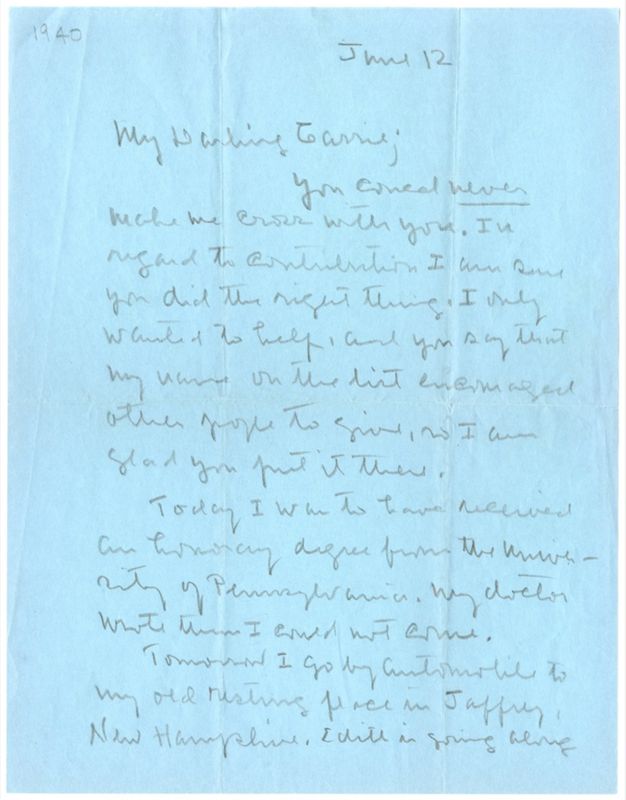 1940
June 12
My Darling Carrie;
You coueal never
make me cross with you. In
regard to contribution I am sure
you did the right thing. I only
wanted to help, and you say that
my name on the list encouraged
other people to give, so I am
glad you put it there.
Today I was to have received
an honorary degree from the Univer-
sity of Pennsylvania. My doctor
wrote them I could not come.
Tomorrow I go by automobile to
my old resting place in Jaffrey,
New Hampshire. Edith is going along